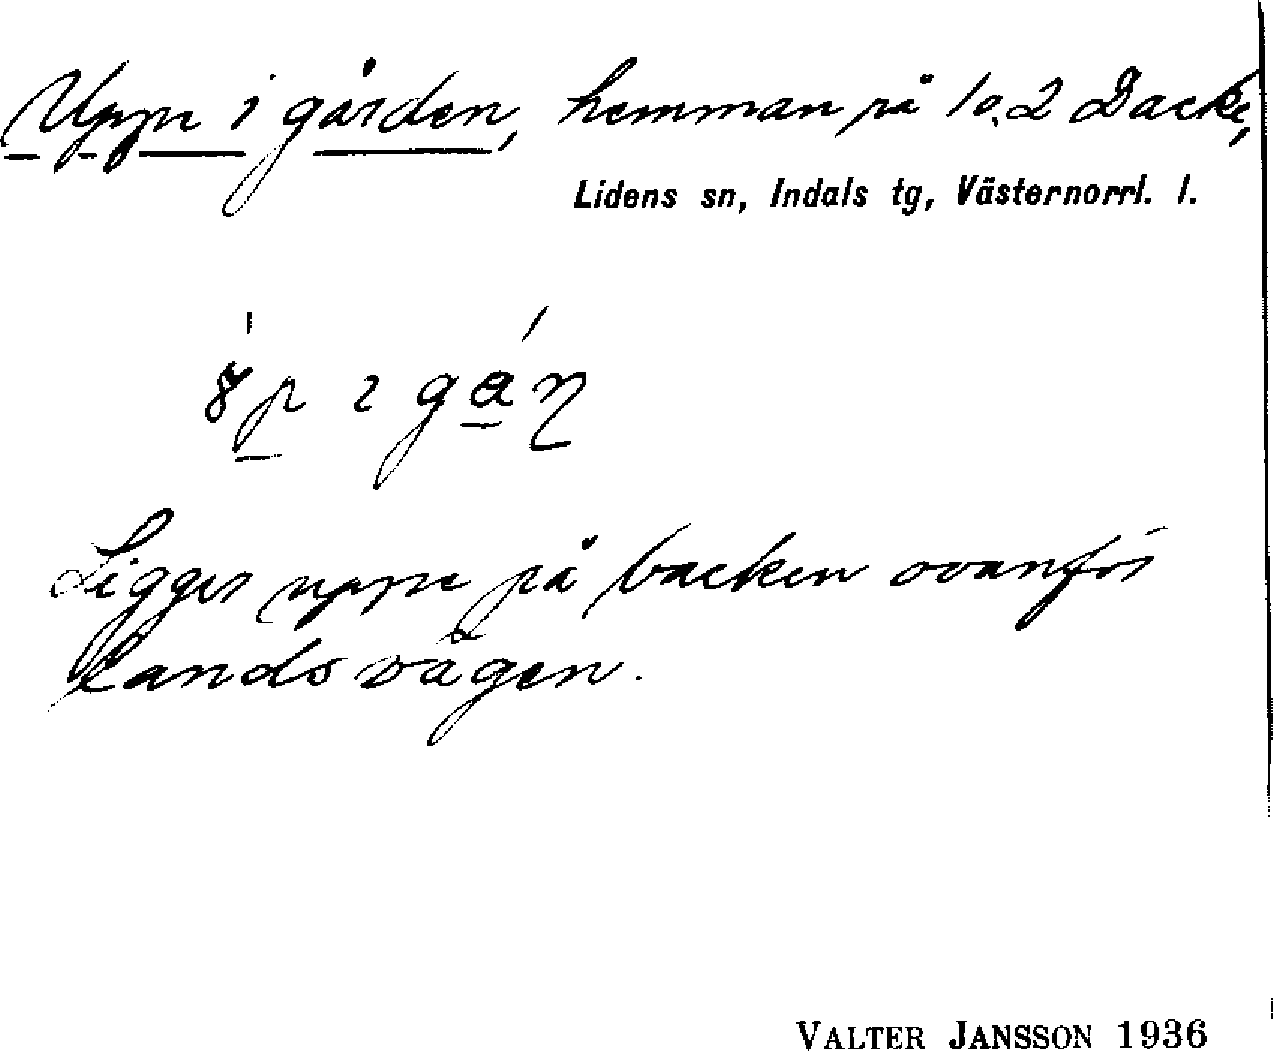 Uppe i gården, hemman på 1 o. 2 Dacke,
Lidens sn, Indals tg, Västernorrl. l.
Ligger uppe på backen ovanför
landsvägen.
VALTER JANSSON 1936